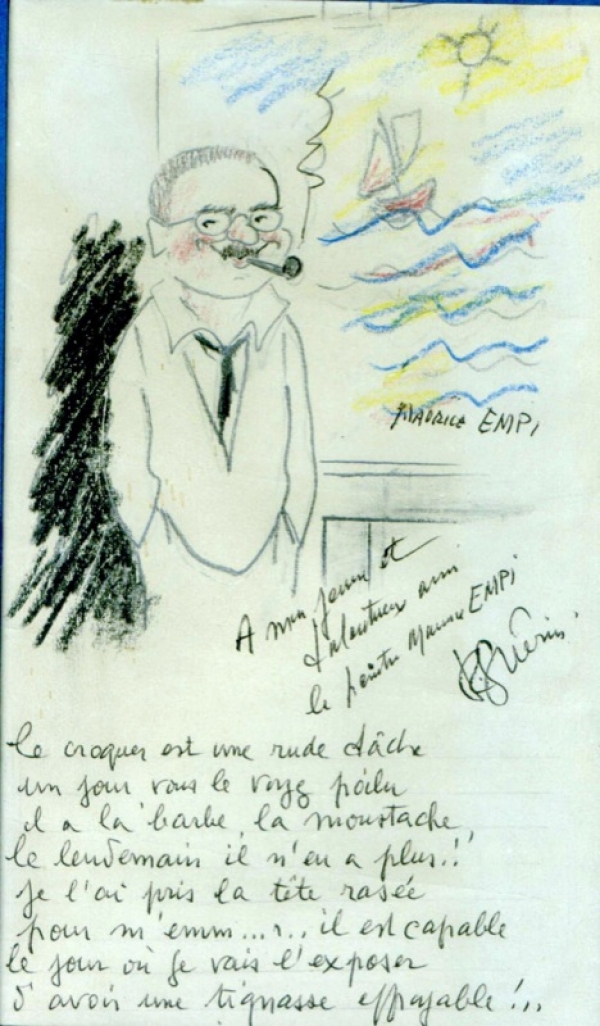 MAURICE EMPI
A mon jeune et
talentueux ami
le peintre Maurice EMPI
le croquer est une rude tâche
un jour vous le voyez poilu
il a la barbe, la moustache,
le lendemain il n'en a plus!!
je l'ai pris la tête rasée
pour m'emm...r.. il est capable
le jour où je vais l'exposer
d'avoir une tignasse effroyable!..